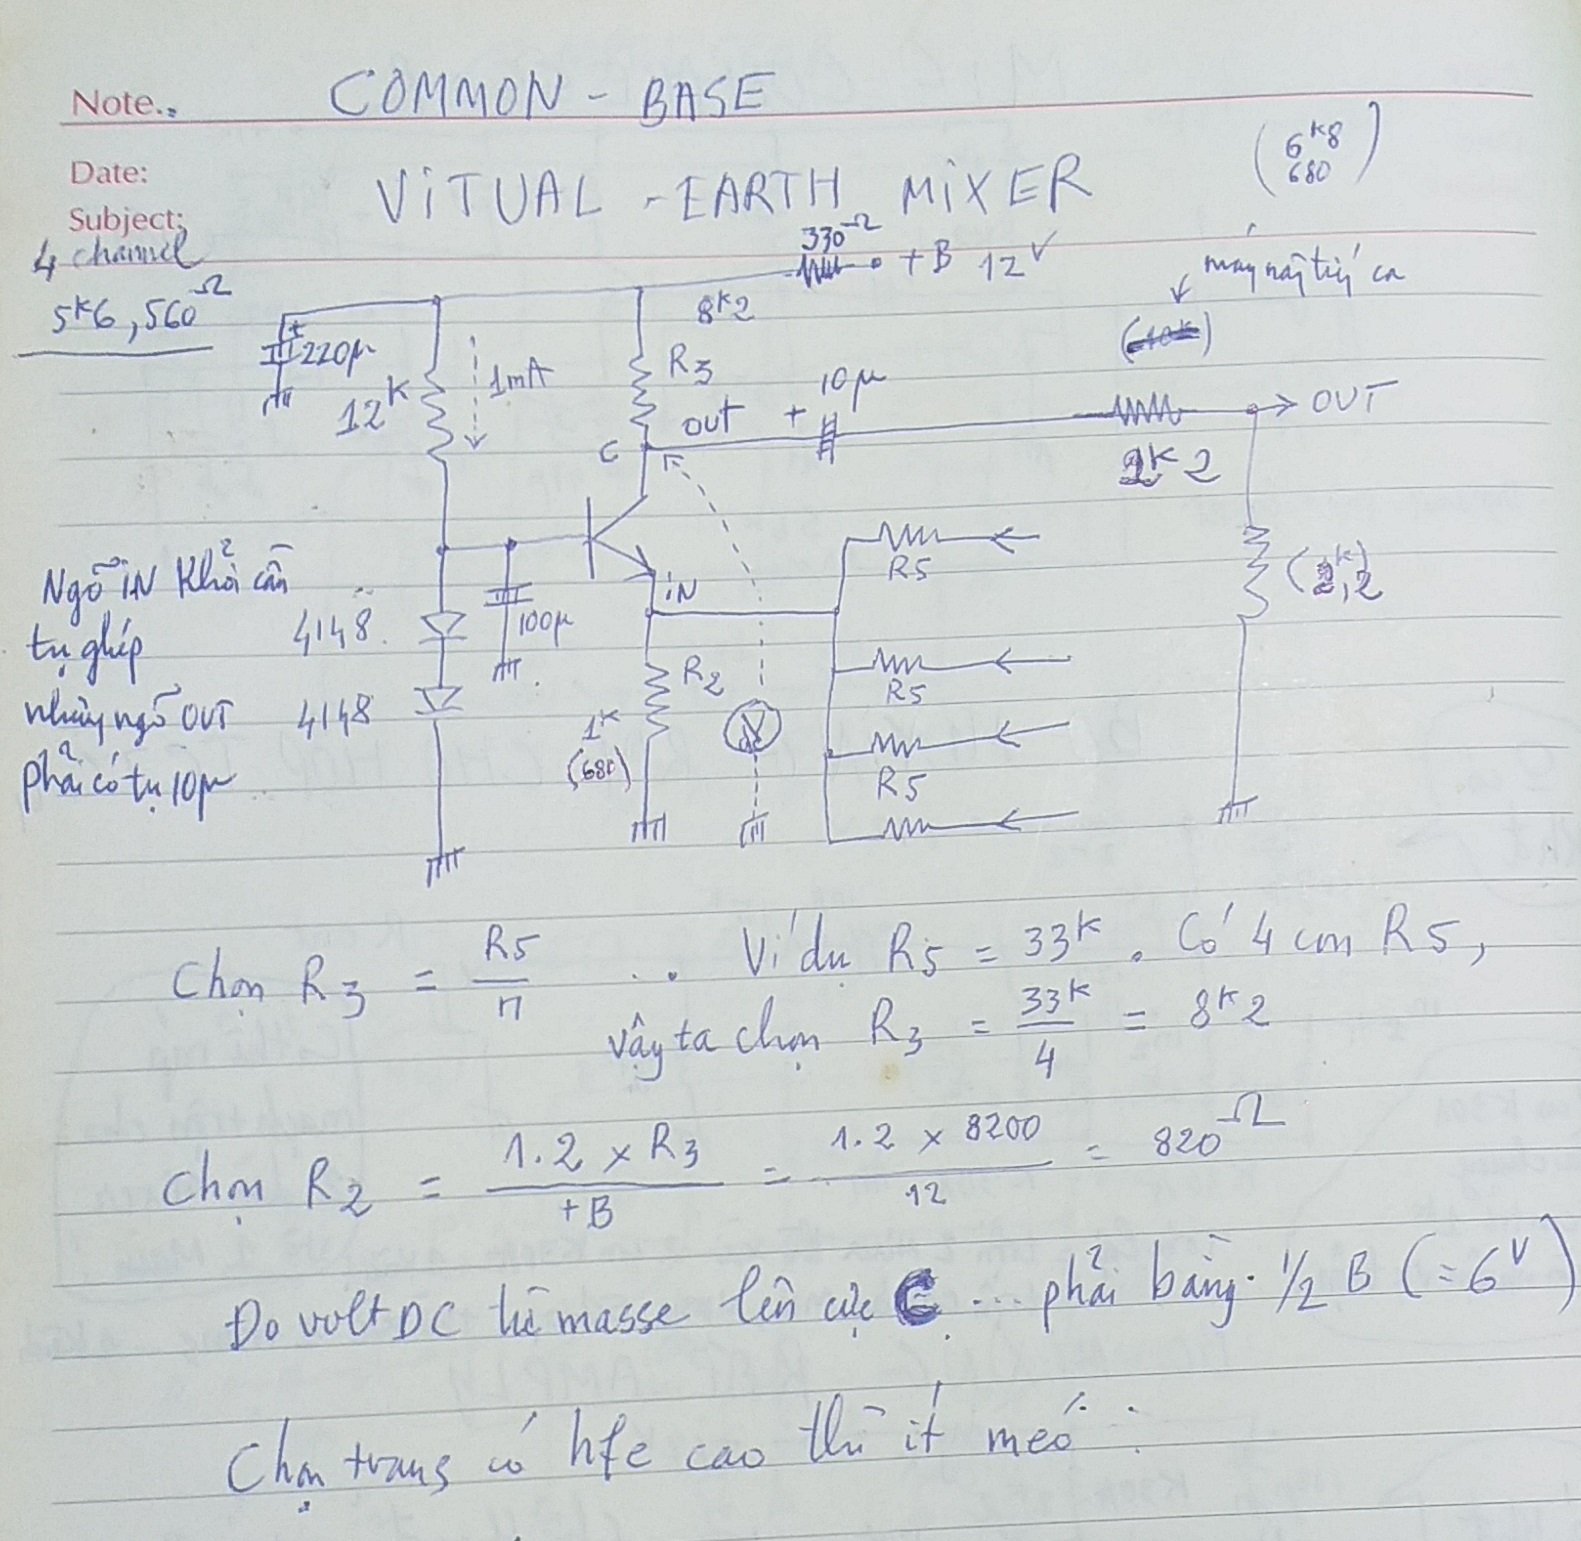 Note.. COMMON - BASE
Date:
Subject:
ViTUAL - EARTH MiXER
(6K8
680)
4 channel
5K6, 560Ω
330Ω
+B 12V
máy này tùy ca
(10K)
220µ
+
12K
1mA
8K2
R3
out
+
10µ
C
OUT
2K2
iN
Ngõ iN Khỏi cần
tụ ghép
nhưng ngõ OUT
phải có tụ 10µ
4148
4148
100µ
R2
1K
(680)
V
DC
R5
R5
R5
(2K,2)
Chọn R3 = R5/n ... Ví dụ R5 = 33K. Có 4 con R5,
vậy ta chọn R3 = 33K/4 = 8K2
Chọn R2 = 1.2 x R3/+B = 1.2 x 8200/12 = 820Ω
Đo volt DC từ masse lên cực C .... phải bằng. 1/2 B (= 6V)
Chọn trans có hfe cao thì ít méo